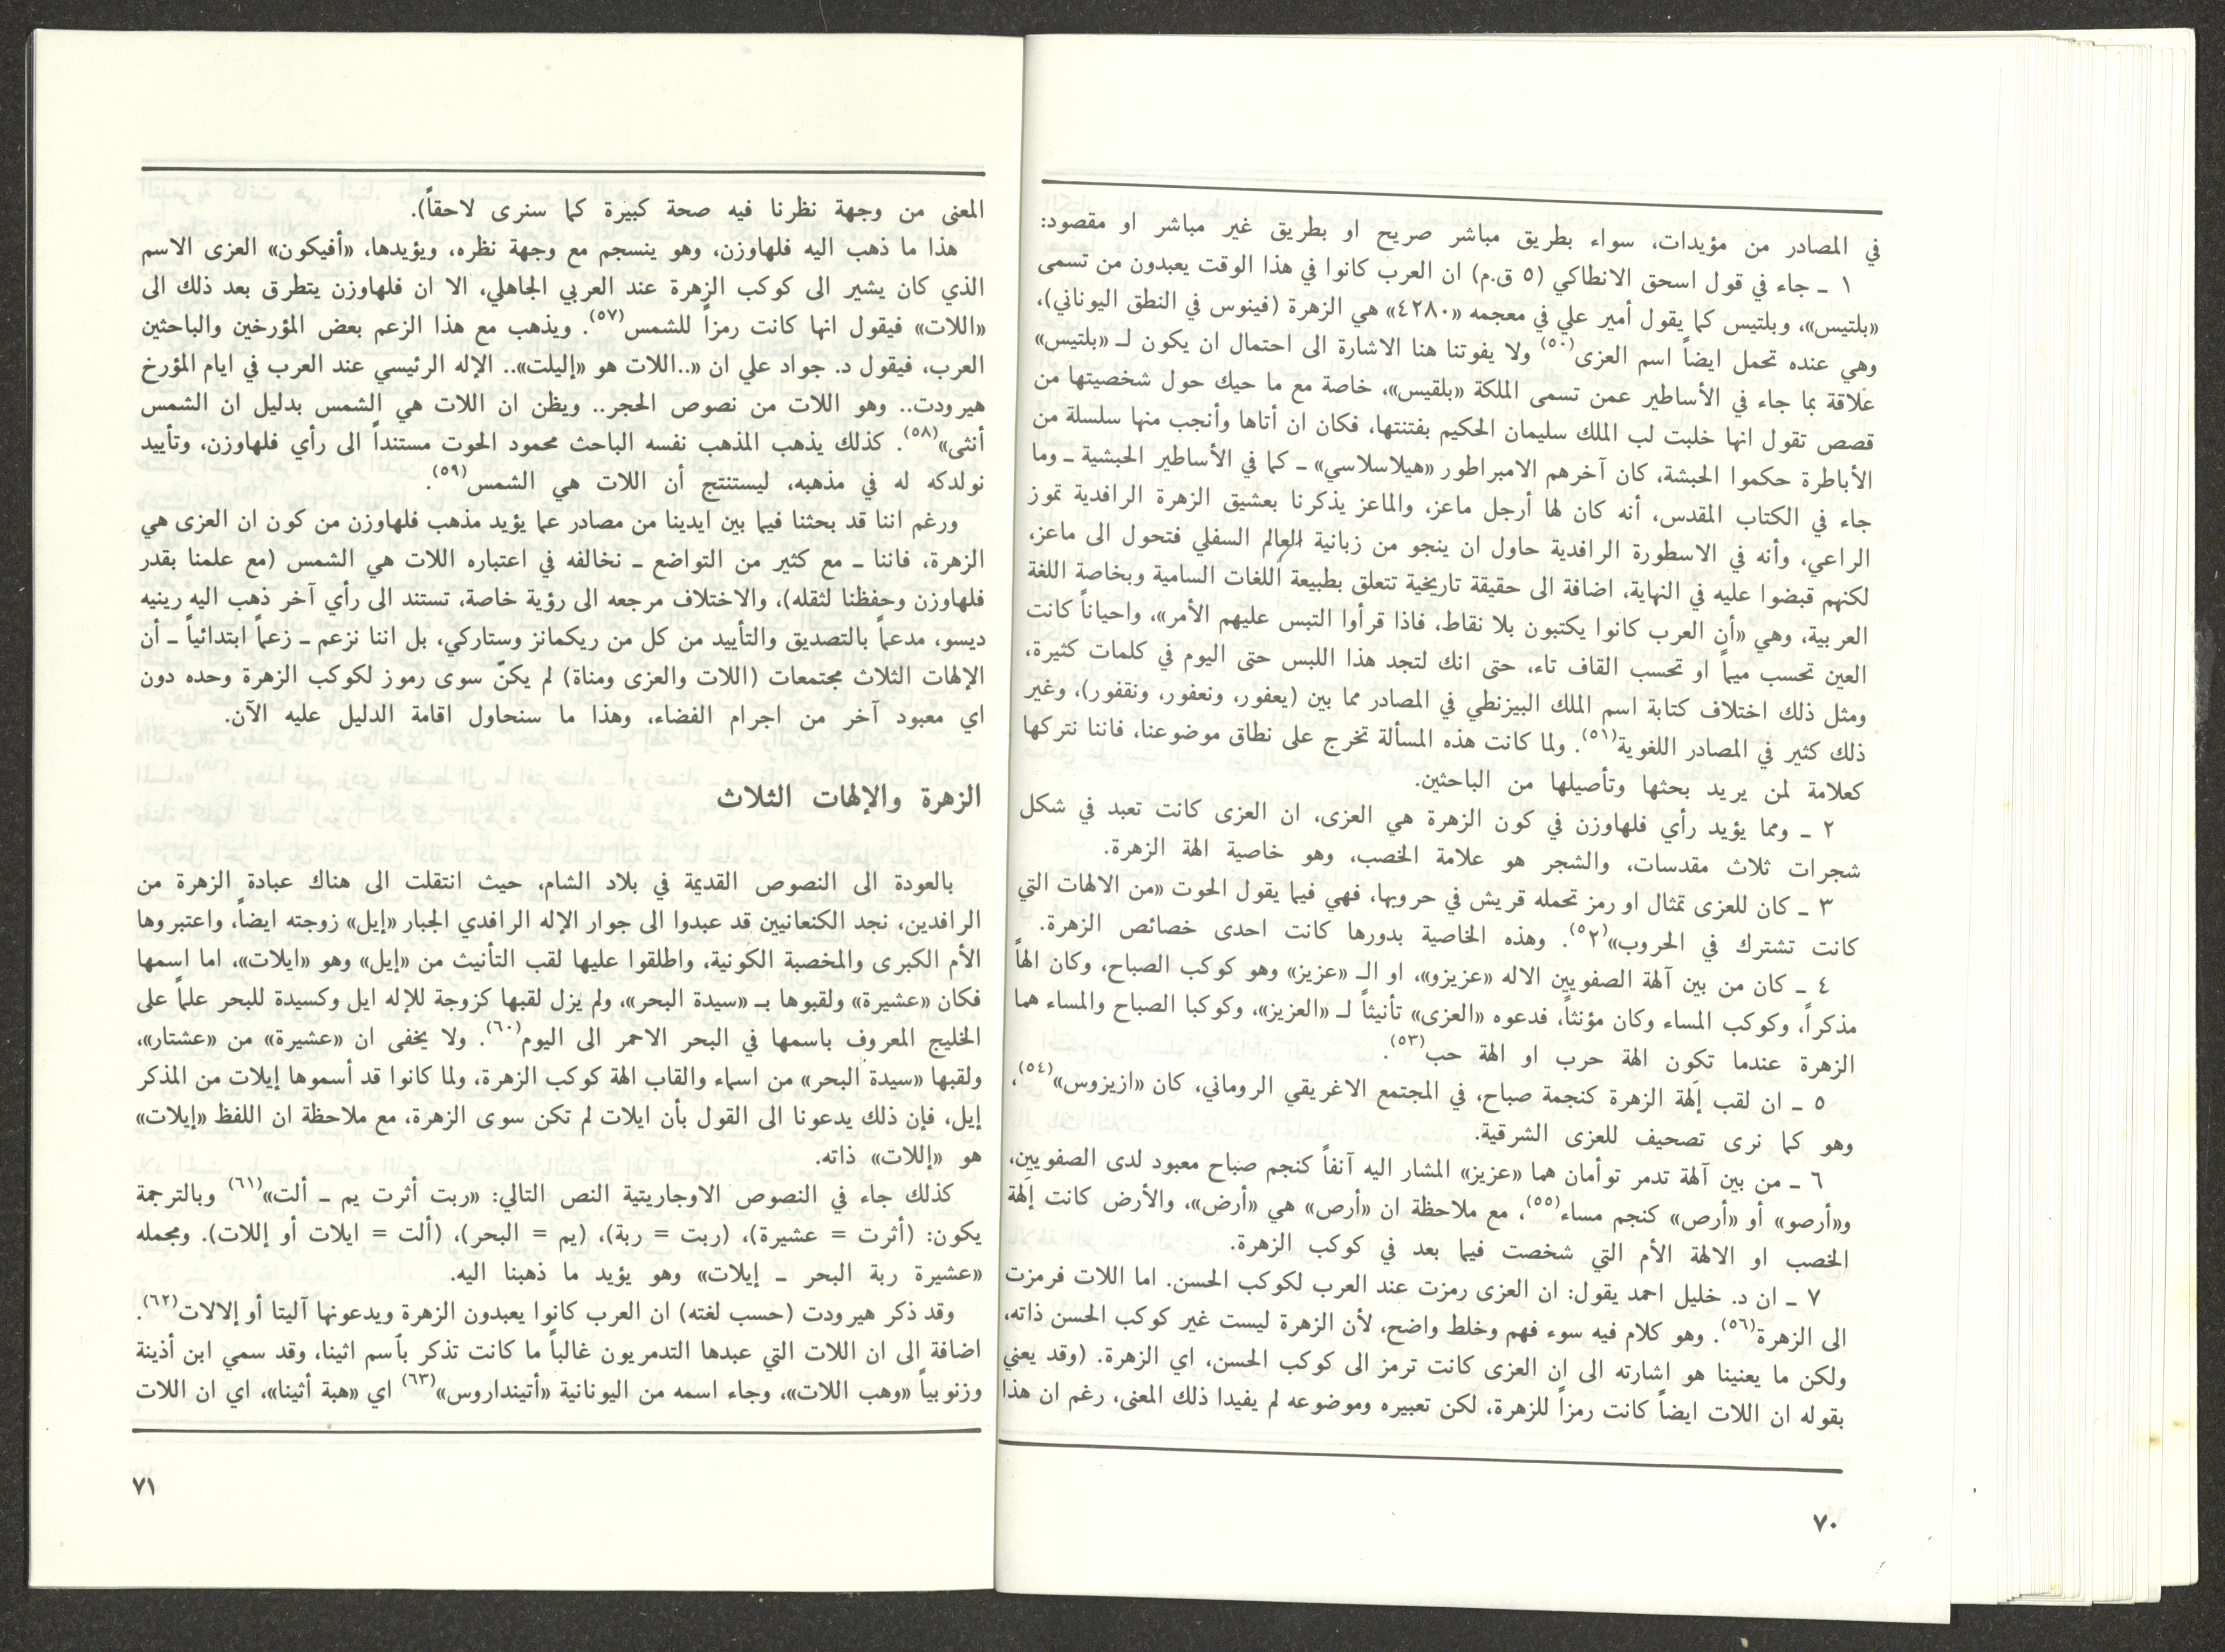 في المصادر من مؤيدات، سواء بطريق مباشر صريح او بطريق غير مباشر او مقصود:
١ ـ جاء في قول اسحق الانطاكي (٥ ق.م) ان العرب كانوا في هذا الوقت يعبدون من تسمى
«بلتيس»، وبلتيس كما يقول أمير علي في معجمه «٤٢٨٠» هي الزهرة (فينوس في النطق اليوناني)،
وهي عنده تحمل ايضاً اسم العزى(٥٠) ولا يفوتنا هنا الاشارة الى احتمال ان يكون لـ «بلتيس»
علاقة بما جاء في الأساطير عمن تسمى الملكة «بلقيس»، خاصة مع ما حيك حول شخصيتها من
قصص تقول انها خلبت لب الملك سليمان الحكيم بفتنتها، فكان ان أتاها وأنجب منها سلسلة من
الأباطرة حكموا الحبشة، كان آخرهم الامبراطور «هيلاسلاسي» ـ كما في الأساطير الحبشية ـ وما
جاء في الكتاب المقدس، أنه كان لها أرجل ماعز، والماعز يذكرنا بعشيق الزهرة الرافدية تموز
الراعي، وأنه في الاسطورة الرافدية حاول ان ينجو من زبانية العالم السفلي فتحول الى ماعز،
لكنهم قبضوا عليه في النهاية، اضافة الى حقيقة تاريخية تتعلق بطبيعة اللغات السامية وبخاصة اللغة
العربية، وهي «أن العرب كانوا يكتبون بلا نقاط، فاذا قرأوا التبس عليهم الأمر»، واحياناً كانت
العين تحسب ميماً او تحسب القاف تاء، حتى انك لتجد هذا اللبس حتى اليوم في كلمات كثيرة،
ومثل ذلك اختلاف كتابة اسم الملك البيزنطي في المصادر مما بين (يعفور، ونعفور، ونقفور)، وغير
ذلك كثير في المصادر اللغوية(٥١). ولما كانت هذه المسألة تخرج على نطاق موضوعنا، فاننا نتركها
كعلامة لمن يريد بحثها وتأصيلها من الباحثين.
٢ ـ ومما يؤيد رأي فلهاوزن في كون الزهرة هي العزى، ان العزى كانت تعبد في شكل
شجرات ثلاث مقدسات، والشجر هو علامة الخصب، وهو خاصية الهة الزهرة.
٣ ـ كان للعزى تمثال او رمز تحمله قريش في حروبها، فهي فيما يقول الحوت «من الالهات التي
كانت تشترك في الحروب»(٥٢). وهذه الخاصية بدورها كانت احدى خصائص الزهرة.
٤ ـ كان من بين آلهة الصفويين الاله «عزيزو»، او الـ «عزيز» وهو كوكب الصباح، وكان الهاً
مذكراً، وكوكب المساء وكان مؤنثاً، فدعوه «العزى» تأنيثاً لـ «العزيز»، وكوكبا الصباح والمساء هما
الزهرة عندما تكون الهة حرب او الهة حب(٥٣).
٥ ـ ان لقب إلهة الزهرة كنجمة صباح، في المجتمع الاغريقي الروماني، كان «ازيزوس»(٥٤)،
وهو كما نرى تصحيف للعزى الشرقية.
٦ ـ من بين آلهة تدمر توأمان هما «عزيز» المشار اليه آنفاً كنجم صباح معبود لدى الصفويين،
و«أرصو» أو «أرص» كنجم مساء(٥٥)، مع ملاحظة ان «أرص» هي «أرض»، والأرض كانت إلهة
الخصب او الالهة الأم التي شخصت فيما بعد في كوكب الزهرة.
٧ ـ ان د. خليل احمد يقول: ان العزى رمزت عند العرب لكوكب الحسن. اما اللات فرمزت
الى الزهرة(٥٦). وهو كلام فيه سوء فهم وخلط واضح، لأن الزهرة ليست غير كوكب الحسن ذاته،
ولكن ما يعنينا هو اشارته الى ان العزى كانت ترمز الى كوكب الحسن، اي الزهرة. (وقد يعني
بقوله ان اللات ايضاً كانت رمزاً للزهرة، لكن تعبيره وموضوعه لم يفيدا ذلك المعنى، رغم ان هذا
٧٠
المعنى من وجهة نظرنا فيه صحة كبيرة كما سنرى لاحقاً).
هذا ما ذهب اليه فلهاوزن، وهو ينسجم مع وجهة نظره، ويؤيدها، «أفيكون» العزى الاسم
الذي كان يشير الى كوكب الزهرة عند العربي الجاهلي، الا ان فلهاوزن يتطرق بعد ذلك الى
«اللات» فيقول انها كانت رمزاً للشمس(٥٧). ويذهب مع هذا الزعم بعض المؤرخين والباحثين
العرب، فيقول د. جواد علي ان «..اللات هو «إليلت».. الإله الرئيسي عند العرب في ايام المؤرخ
هيرودت.. وهو اللات من نصوص الحجر.. ويظن ان اللات هي الشمس بدليل ان الشمس
أنثى»(٥٨). كذلك يذهب المذهب نفسه الباحث محمود الحوت مستنداً الى رأي فلهاوزن، وتأييد
نولدكه له في مذهبه، ليستنتج أن اللات هي الشمس(٥٩).
ورغم اننا قد بحثنا فيما بين ايدينا من مصادر عما يؤيد مذهب فلهاوزن من كون ان العزى هي
الزهرة، فاننا ـ مع كثير من التواضع ـ نخالفه في اعتباره اللات هي الشمس (مع علمنا بقدر
فلهاوزن وحفظنا لثقله)، والاختلاف مرجعه الى رؤية خاصة، تستند الى رأي آخر ذهب اليه رينيه
ديسو، مدعماً بالتصديق والتأييد من كل من ريكمانز وستاركي، بل اننا نزعم ـ زعماً ابتدائياً ـ أن
الإلهات الثلاث مجتمعات (اللات والعزى ومناة) لم يكنّ سوى رموز لكوكب الزهرة وحده دون
اي معبود آخر من اجرام الفضاء، وهذا ما سنحاول اقامة الدليل عليه الآن.
الزهرة والإلهات الثلاث
بالعودة الى النصوص القديمة في بلاد الشام، حيث انتقلت الى هناك عبادة الزهرة من
الرافدين، نجد الكنعانيين قد عبدوا الى جوار الإله الرافدي الجبار «إيل» زوجته ايضاً، واعتبروها
الأم الكبرى والمخصبة الكونية، واطلقوا عليها لقب التأنيث من «إيل» وهو «ايلات»، اما اسمها
فكان «عشيرة» ولقبوها بـ «سيدة البحر»، ولم يزل لقبها كزوجة للإله ايل وكسيدة للبحر علماً على
الخليج المعروف باسمها في البحر الاحمر الى اليوم(٦٠). ولا يخفى ان «عشيرة» من «عشتار»،
ولقبها «سيدة البحر» من اسماء والقاب الهة كوكب الزهرة، ولما كانوا قد أسموها إيلات من المذكر
إيل، فإن ذلك يدعونا الى القول بأن ايلات لم تكن سوى الزهرة، مع ملاحظة ان اللفظ «إيلات»
هو «إللات» ذاته.
كذلك جاء في النصوص الاوجاريتية النص التالي: «ربت أثرت يم ـ ألت»(٦١) وبالترجمة
يكون: (أثرت = عشيرة)، (ربت = ربة)، (يم = البحر)، (ألت = ايلات أو إللات). ومجمله
«عشيرة ربة البحر ـ إيلات» وهو يؤيد ما ذهبنا اليه.
وقد ذكر هيرودت (حسب لغته) ان العرب كانوا يعبدون الزهرة ويدعونها آليتا أو إلالات(٦٢).
اضافة الى ان اللات التي عبدها التدمريون غالباً ما كانت تذكر بٱسم اثينا، وقد سمي ابن أذينة
وزنوبيا «وهب اللات»، وجاء اسمه من اليونانية «أتينداروس»(٦٣) اي «هبة أثينا»، اي ان اللات
٧١